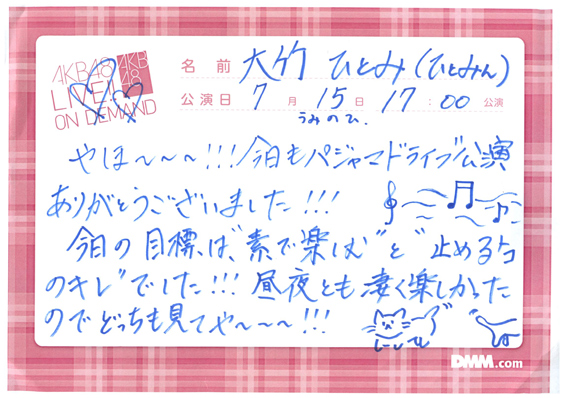 AKB48
LIVE!!
ON DEMAND
AKB
48
名前 大竹 ひとみ(ひとみん)
公演日 7月15日 17:00 公演
うみのひ.
やほ〜〜〜!!!今日もパジャマドライブ公演
ありがとうございました!!!
今日の目標は、"素で楽しむ"と"止めるトコ
のキレ"でした!!!昼夜とも凄く楽しかった
のでどっちも見てや〜〜〜!!!
DMM.com